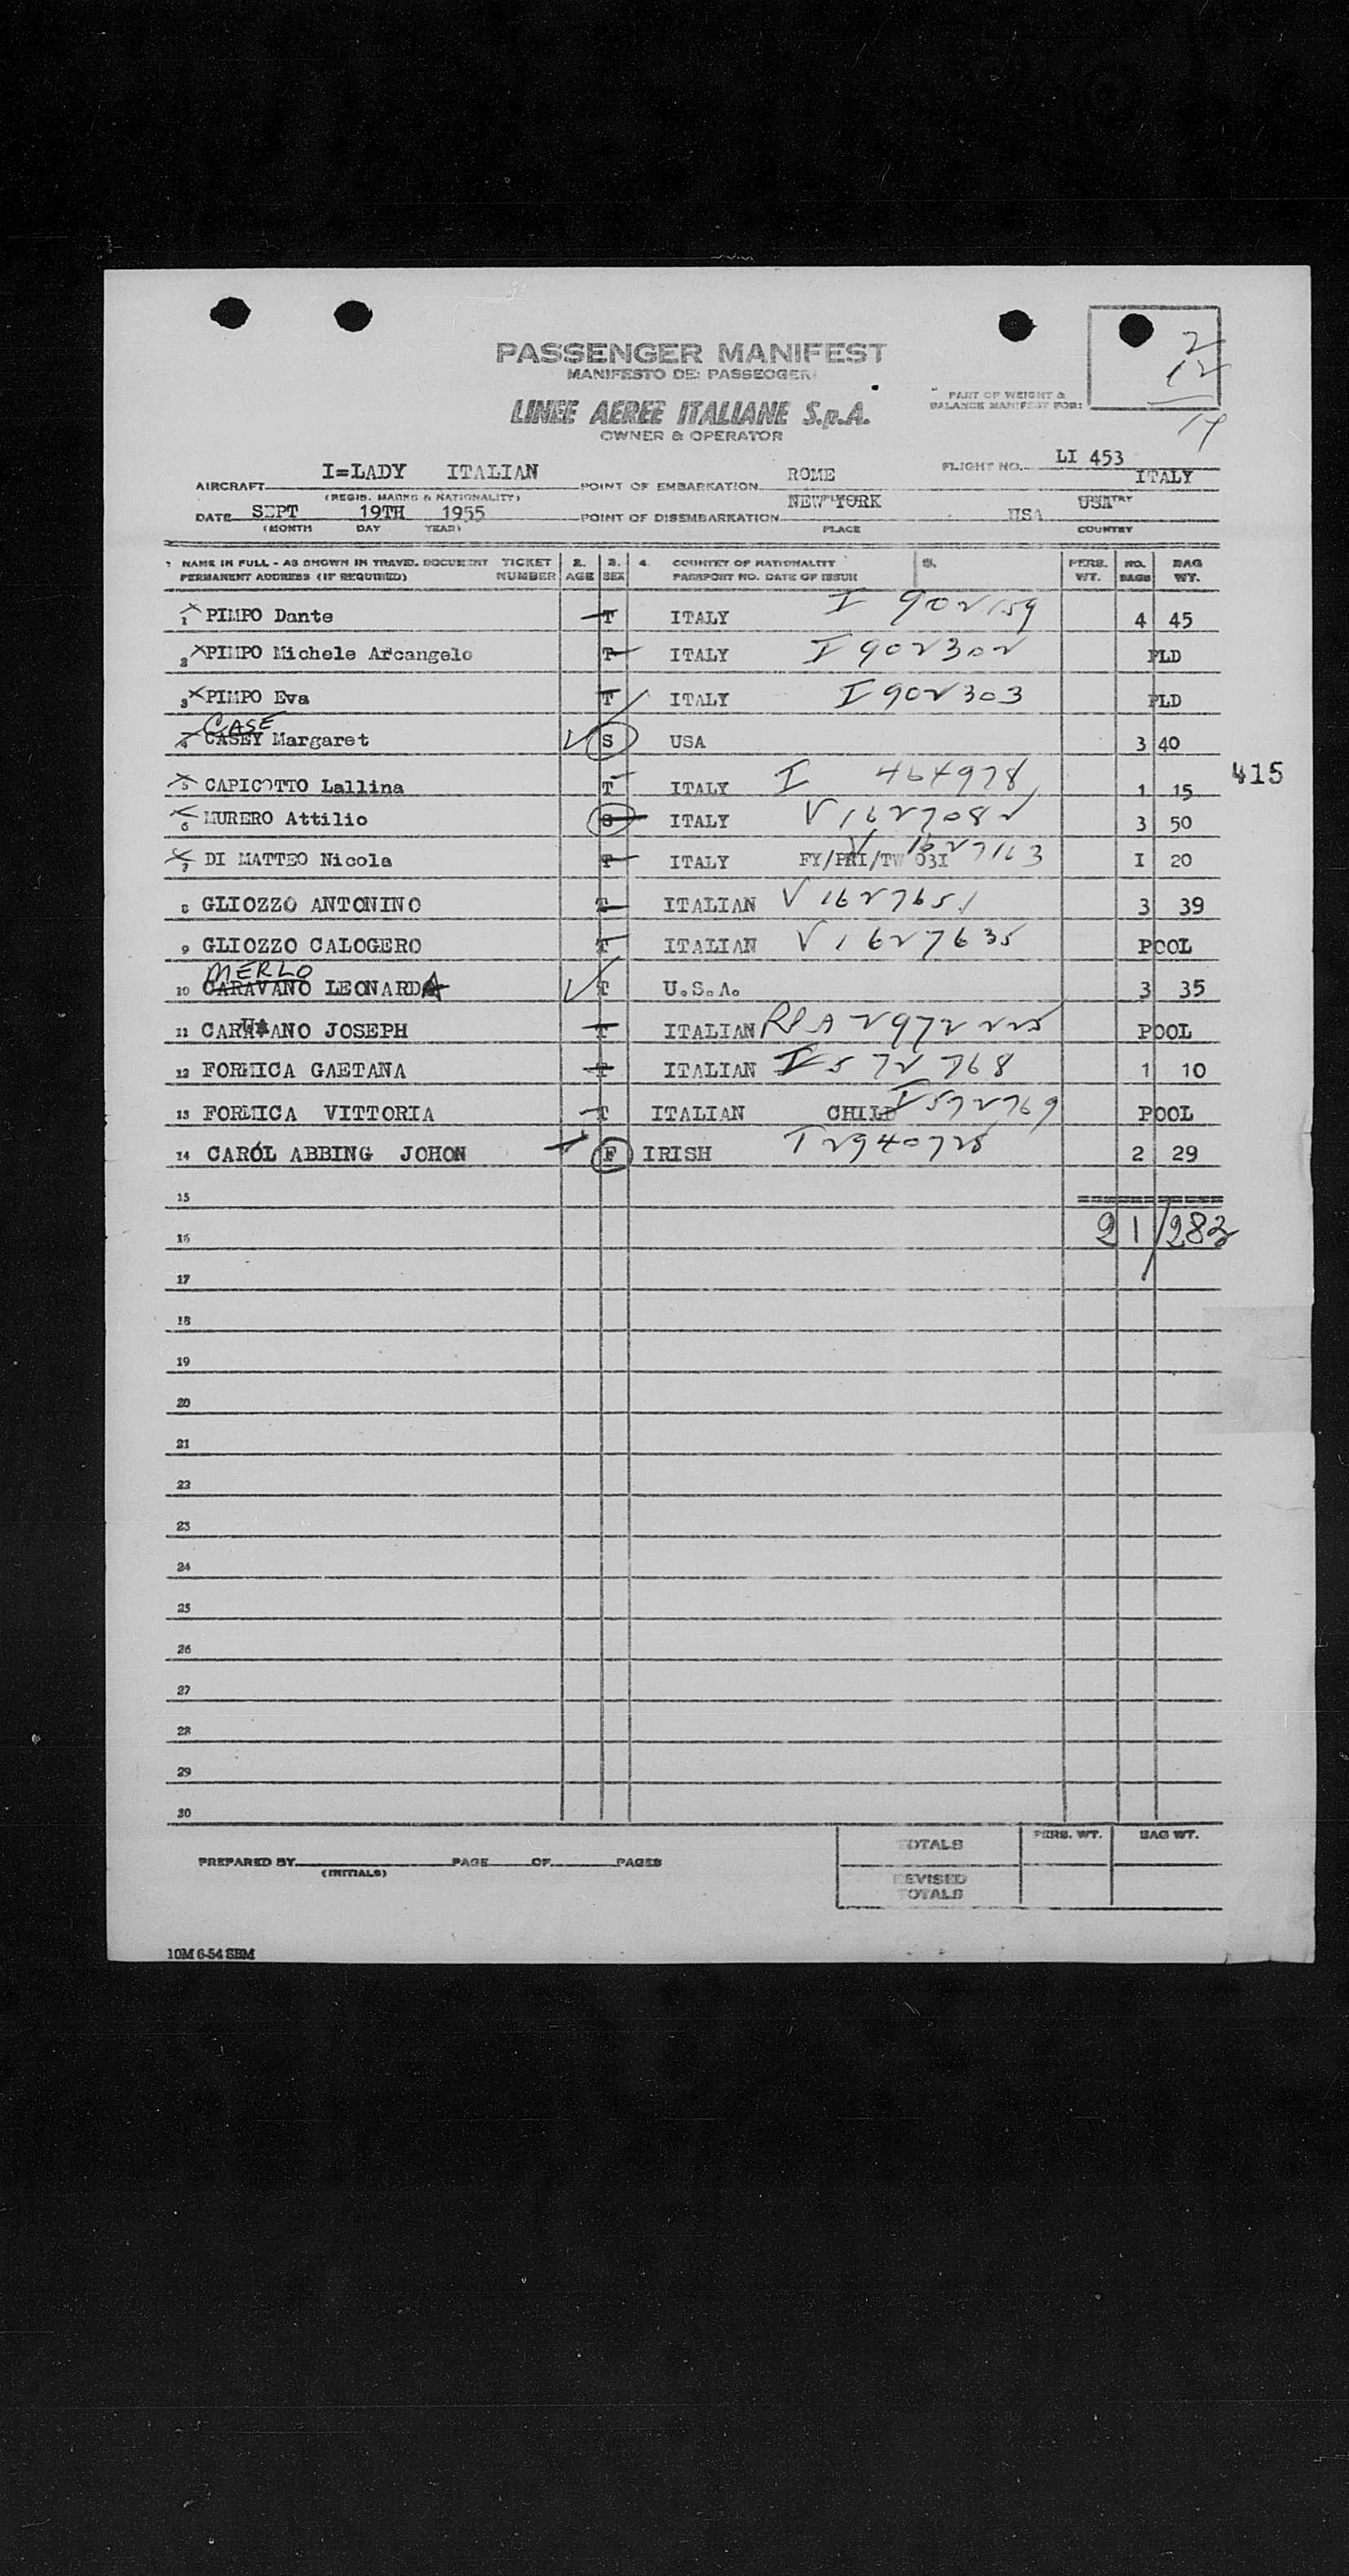 2
12
14
PASSENGER MANIFEST
MANIFESTO DEI PASSEGGERI
LINEE AEREE ITALIANE S.p.A.
OWNER & OPERATOR
PART OF WEIGHT &
BALANCE MANIFEST FOR:
AIRCRAFT I=LADY ITALIAN POINT OF EMBARKATION ROME FLIGHT NO. LI 453 ITALY
(REGIS. MARKS & NATIONALITY)
DATE SEPT 19TH 1955 POINT OF DISEMBARKATION NEW YORK USA USA
(MONTH DAY YEAR) PLACE COUNTRY
1 NAME IN FULL - AS SHOWN IN TRAVEL DOCUMENT TICKET 2. 3. 4. COUNTRY OF NATIONALITY 5. PERS. NO. BAG
PERMANENT ADDRESS (IF REQUIRED) NUMBER AGE SEX PASSPORT NO. DATE OF ISSUE WT. BAGS WT.
1 PIMPO Dante T ITALY I 902159 4 45
2 PIMPO Michele Arcangelo T ITALY I 902302 PLD
3 PIMPO Eva T ITALY I 902303 PLD
CASE
4 CASEY Margaret S USA 3 40
5 CAPICOTTO Lallina T ITALY I 464978 1 15
415
6 MURERO Attilio S ITALY V 1627082 3 50
7 DI MATTEO Nicola T ITALY FY/PRI/TW 031 V 1627163 I 20
8 GLIOZZO ANTONINO T ITALIAN V 1627651 3 39
9 GLIOZZO CALOGERO T ITALIAN V 1627635 POOL
MERLO
10 CARAVANO LEONARDA T U.S.A. 3 35
11 CARUANO JOSEPH T ITALIAN 2972225 POOL
12 FORMICA GAETANA T ITALIAN I 572768 1 10
13 FORMICA VITTORIA T ITALIAN CHILD I 572769 POOL
14 CAROL ABBING JOHON F IRISH T 2940728 2 29
15
16 21/283
17
18
19
20
21
22
23
24
25
26
27
28
29
30
TOTALS PERS. WT. BAG WT.
PREPARED BY PAGE OF PAGES
(INITIALS)
REVISED
TOTALS
10M 6-54 SBM